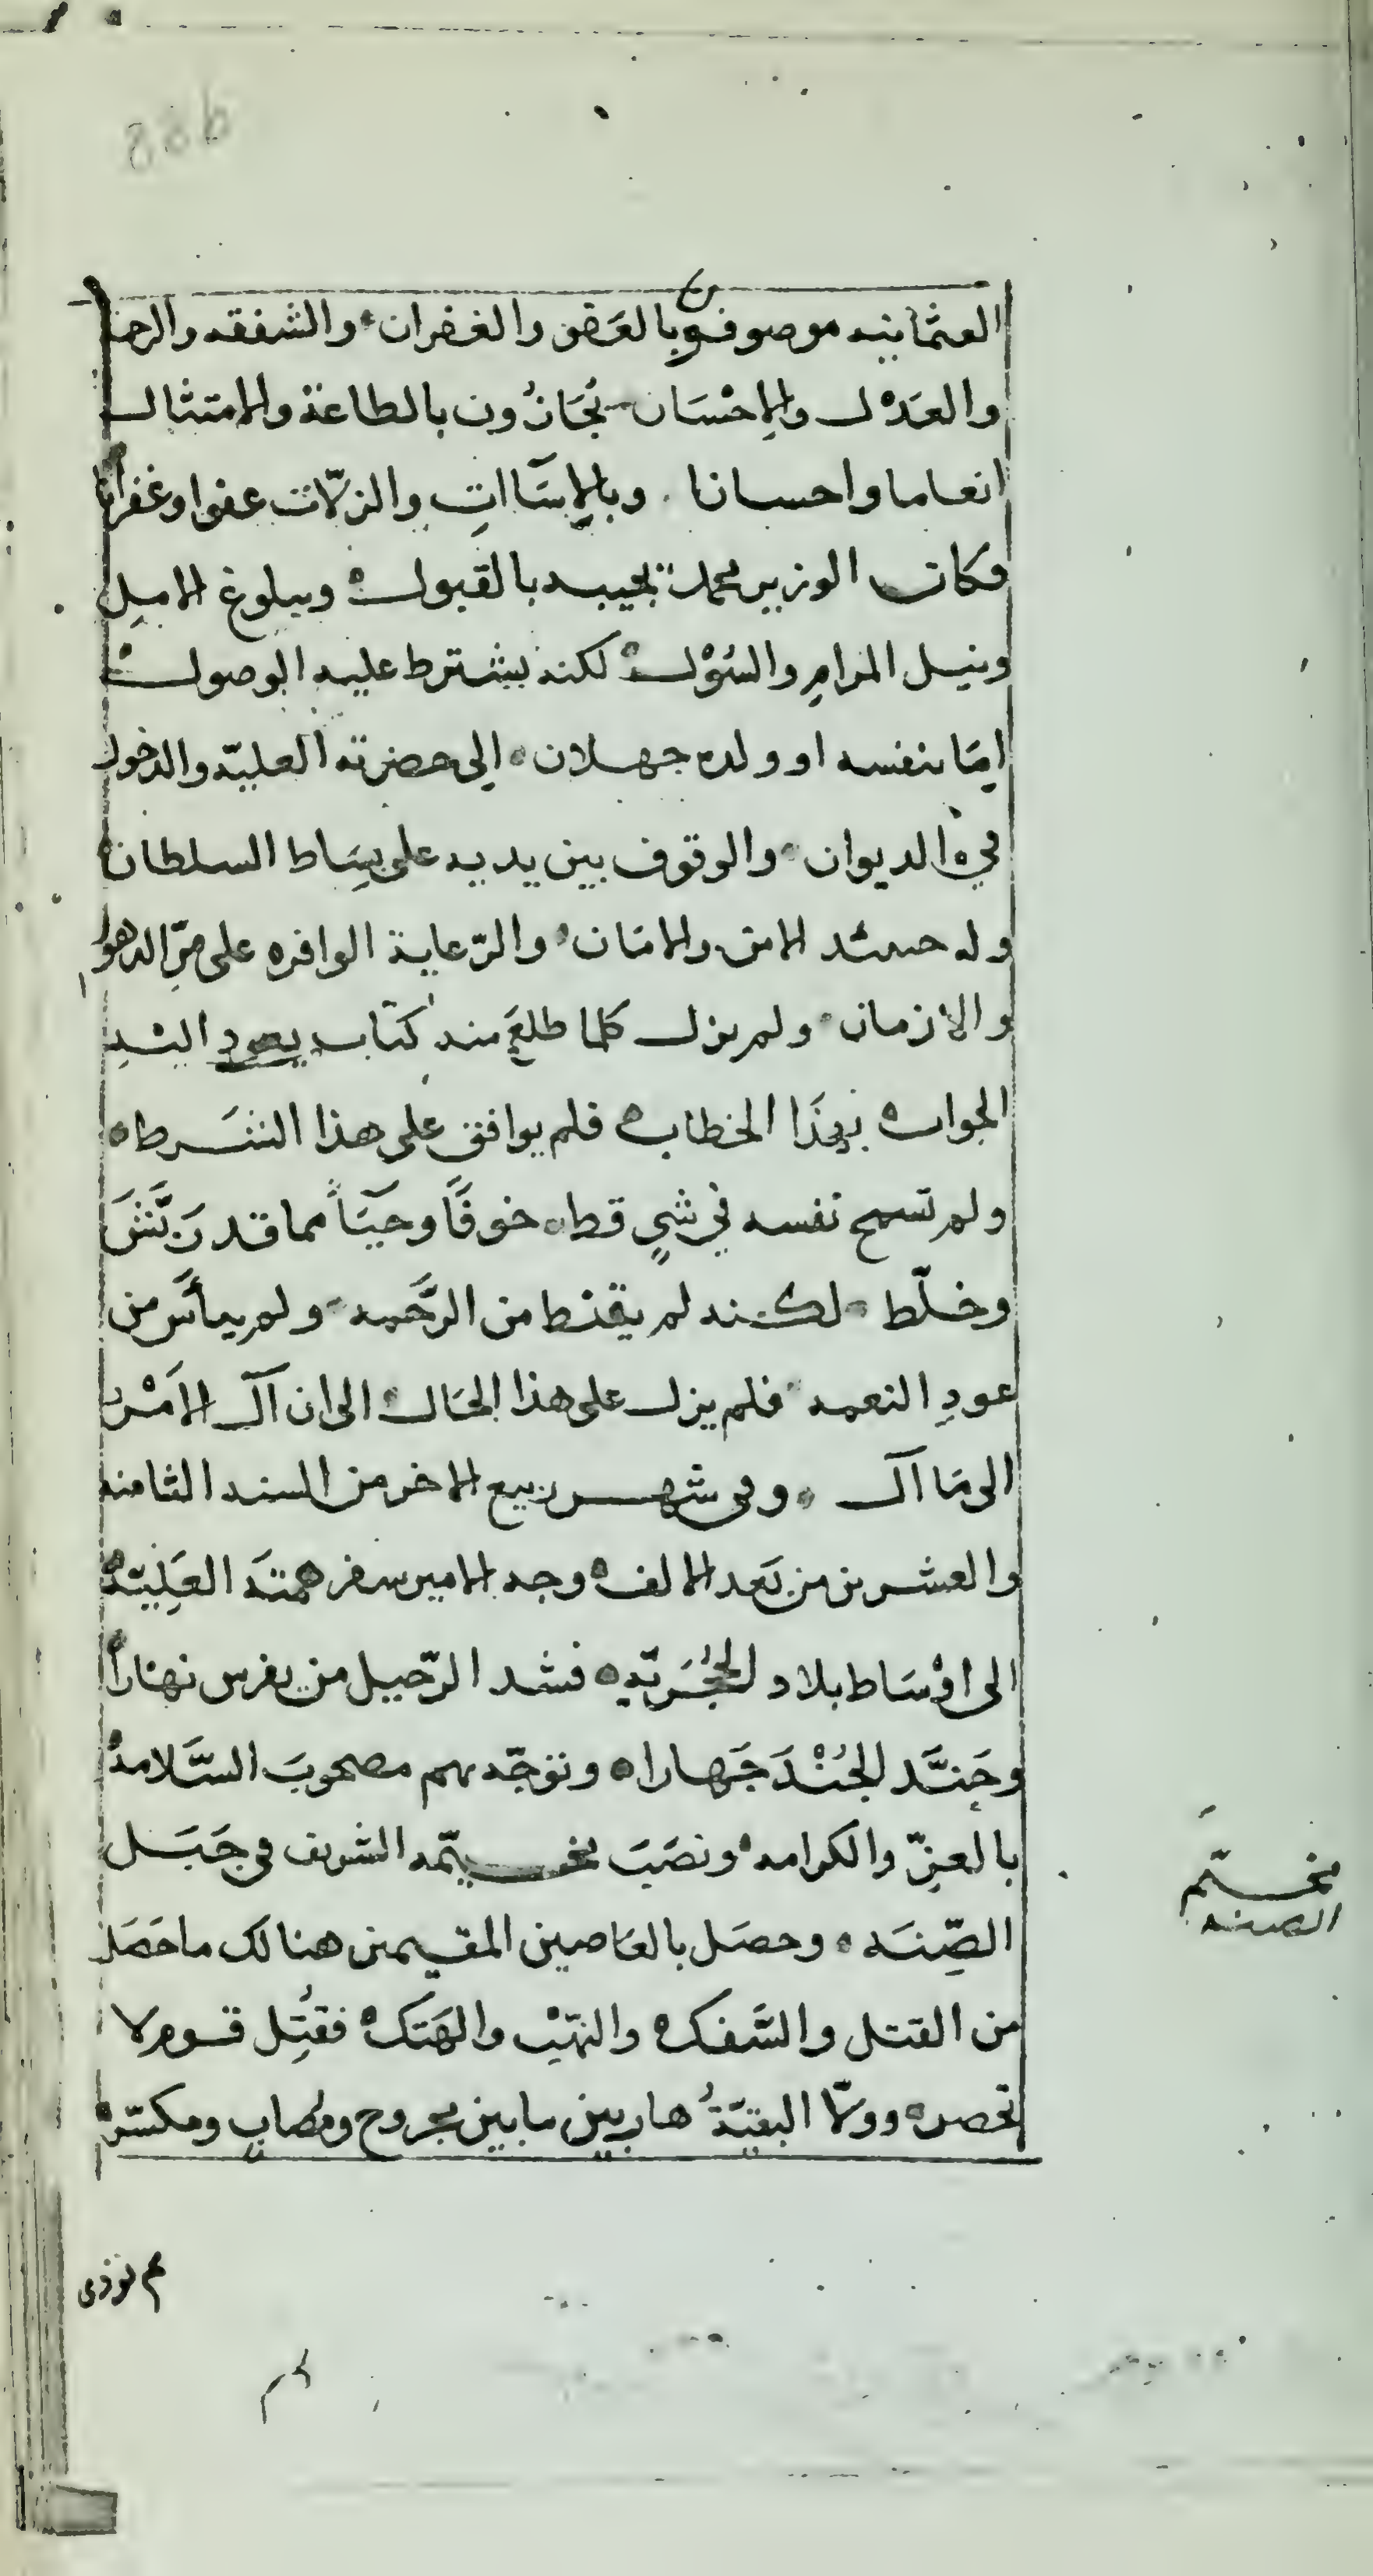 88b
العثمانيه موصوفون بالعَفو والغفران والشفقه والرحمه
والعَدْل والإحْسَان يُجَازُون بالطاعة والامتثال
انعاما واحسانا وبالإسَاآتِ والزلّات عفوا وغفراناً
فكان الوزير محمد يجيبه بالقبول وببلوغ الامل
ونيل المرامِ والسُوْل لكنه يشترط عليه الوصول
اِمّا بنفسه او ولده جهلان إلى حضرته العليّه والدخول
في الديوان والوقوف بين يديه على بِسَاط السلطان
وله حينئذ الامن والامَان والرّعاية الوافره على مرّ الدهور
والازمان ولم يزل كلما طلعَ منه كتاب يعود اليه
الجواب بهذَا الخطاب فلم يوافق على هذا الشرط
ولم تسمح نفسه في شيٍ قط خوفًا وحيَآً مما قد
وخلّط لكنه لم يقنط من الرَّحمه ولم ييأس من
عودِ النعمه فلم يزل على هذا الحَال الى ان آل الامْر
الى مَا آل وفي شهر ربيع الاخر من السنه الثامنه
والعشرين من بَعد الالف وجه الامير سفر همتَه العَلِيّه
الى اوْسَاط بلاد الحُجَريّه فشد الرّحيل من يفرس نهاراً
وجَنَّد الجُنْدَ جَهارا وتوجّه بهم مصحوبَ السَّلامه
بالعزّ والكرامه ونصَبَ مخيّمه الشريف في جَبَل
الصِّنَه وحصَل بالعَاصين المقيمين هنالك ما حَصَل
من القتل والسَّفك والنّهْب والهَتك فقُتِل قوم لا
تحصر وولّا البقيّةُ هاربين ما بين مجروح ومصابٍ ومكسّر
مخيّم
الصنه
ثم نوذى